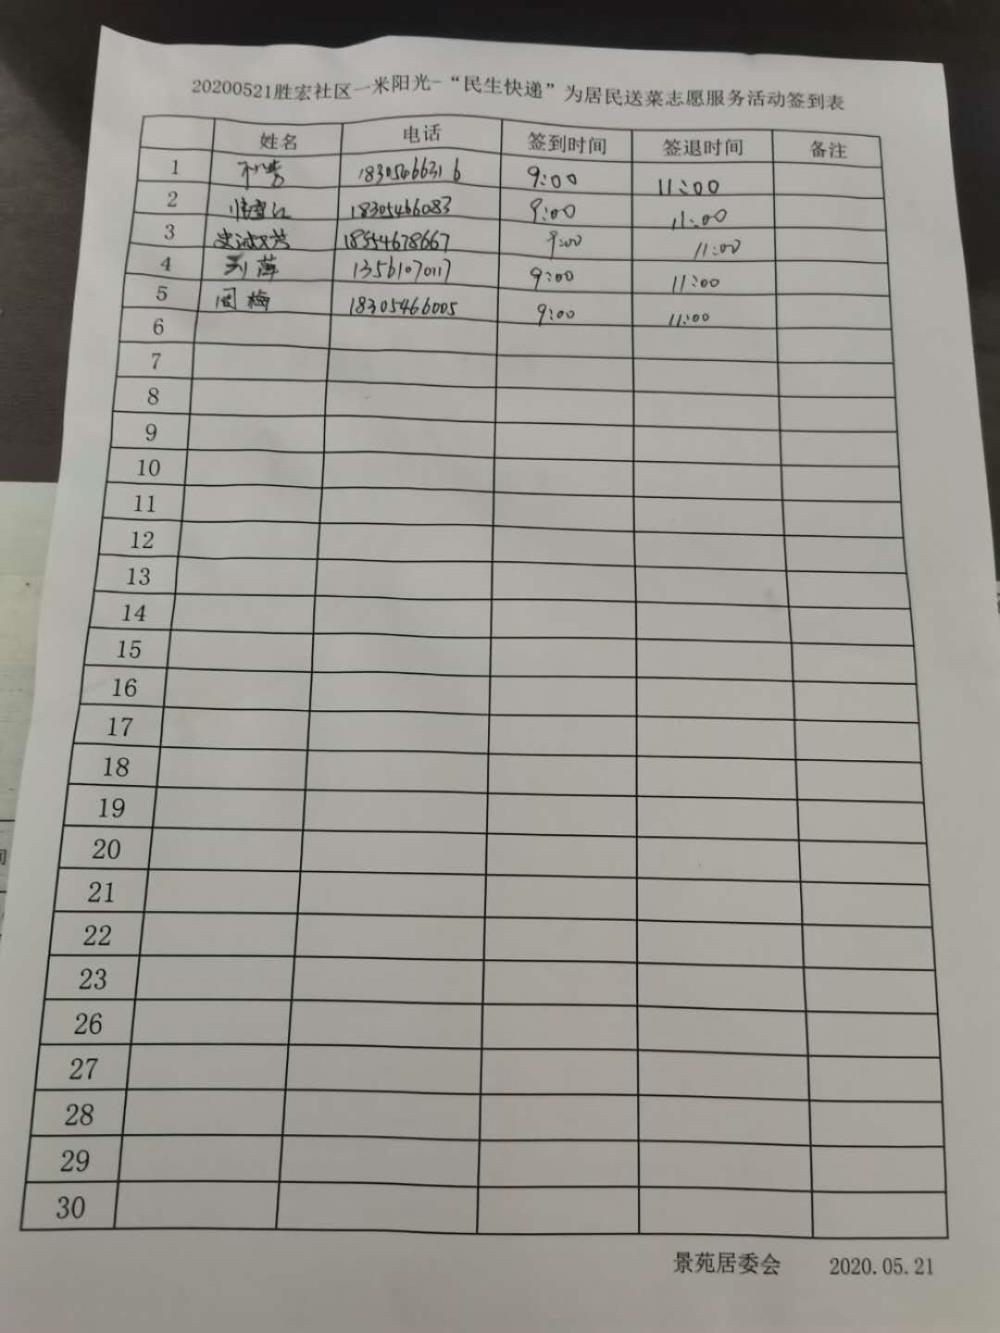 20200521胜宏社区一米阳光-“民生快递”为居民送菜志愿服务活动签到表
姓名 电话 签到时间 签退时间 备注
1 18305466316 9:00 11:00
2 18305466083 9:00 11:00
3 18554678667 9:00 11:00
4 刘萍 13561070117 9:00 11:00
5 周梅 18305466005 9:00 11:00
6
7
8
9
10
11
12
13
14
15
16
17
18
19
20
21
22
23
26
27
28
29
30
景苑居委会 2020.05.21